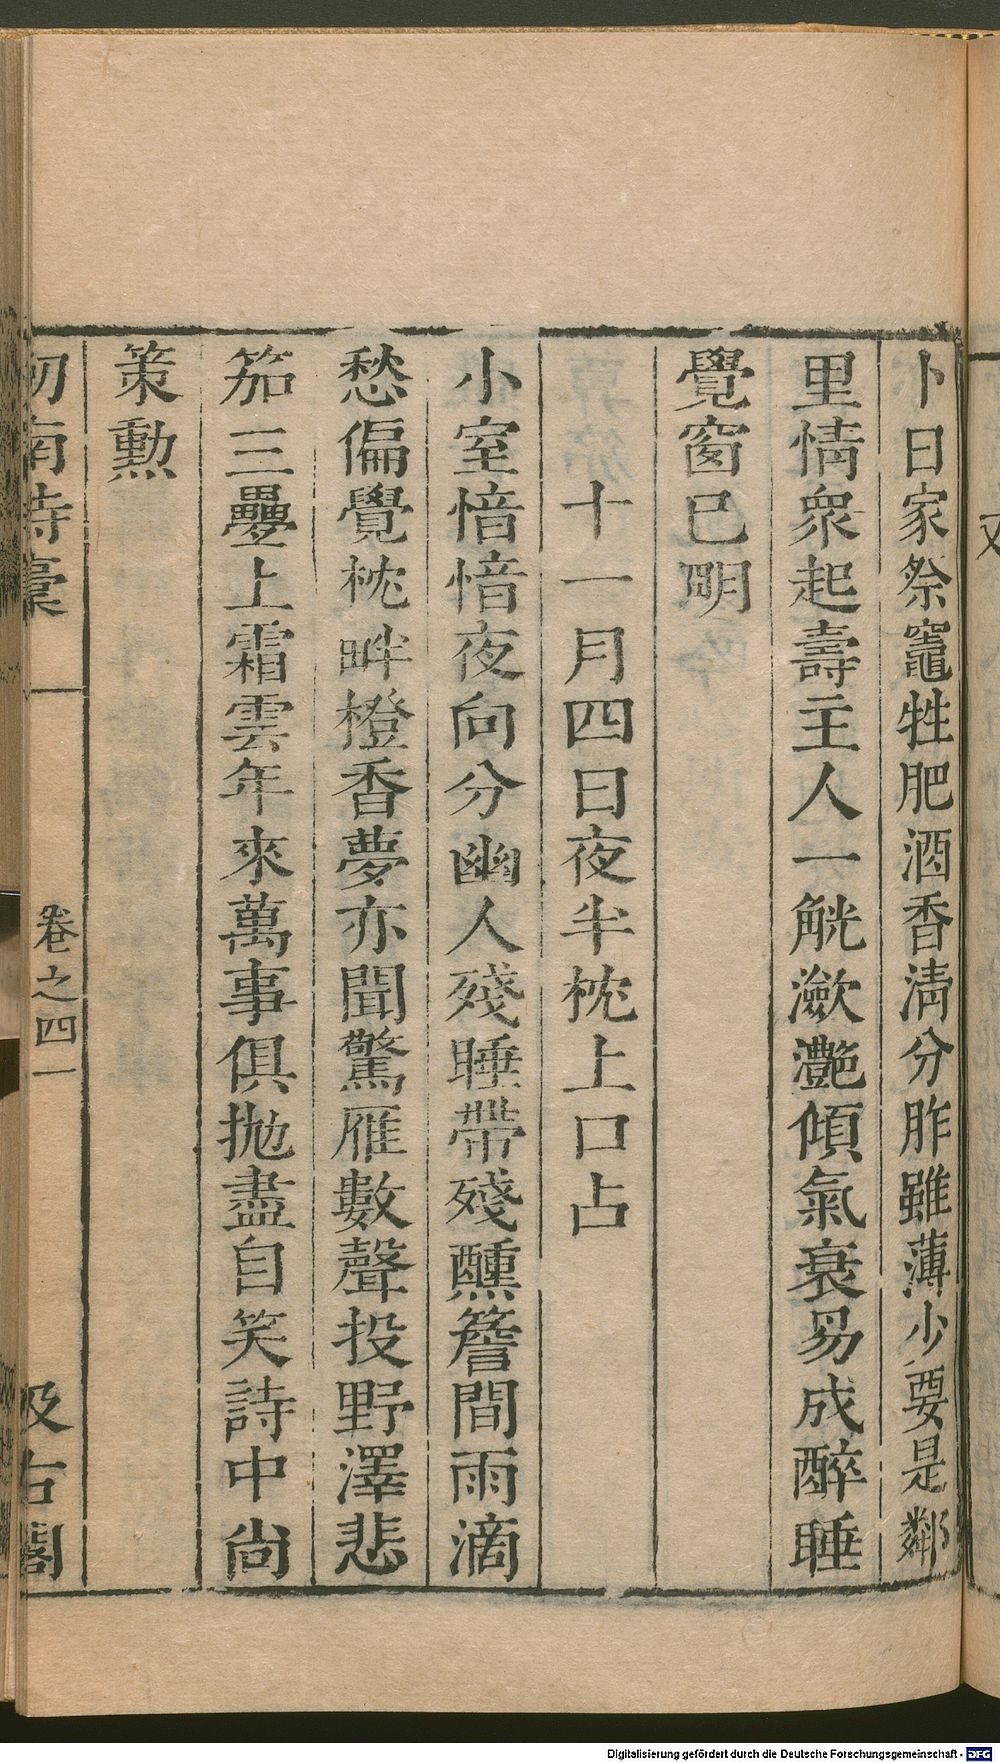 卜日家祭竈牲肥酒香清分胙雖薄少要是鄰
里情衆起壽主人一觥瀲灩傾氣衰易成醉睡
覺窗已明
十一月四日夜半枕上口占
小室愔愔夜向分幽人殘睡帶殘醺簷間雨滴
愁偏覺枕畔橙香夢亦聞驚雁數聲投野澤悲
笳三疊上霜雲年來萬事俱拋盡自笑詩中尚
策勳
劒南詩稾
卷之四一
汲古閣
Digitalisierung gefördert durch die Deutsche Forschungsgemeinschaft - DFG